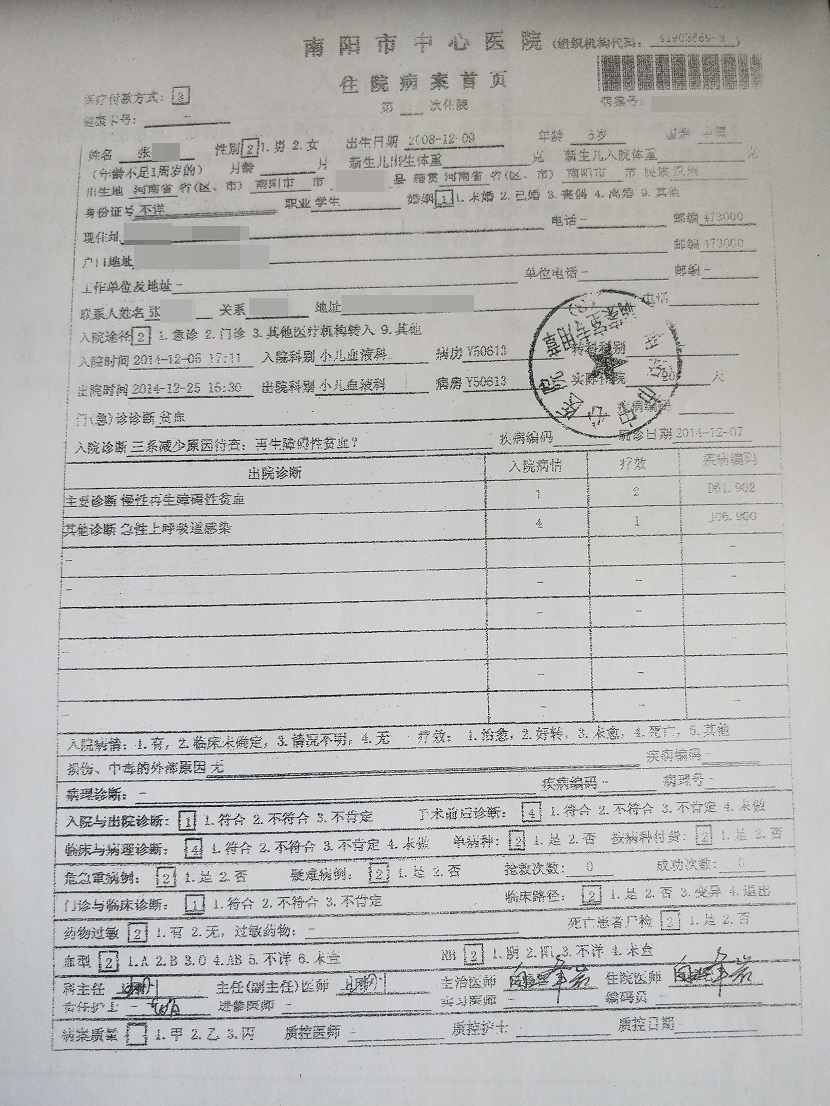 南阳市中心医院 (组织机构代码:
住院病案首页
医疗付款方式: 3 第 次住院 病案号:
健康卡号: -
姓名 张 性别 2 1.男 2.女 出生日期 2008-12-09 年龄 5岁
(年龄不足1周岁的) 月龄 月 新生儿出生体重 克 新生儿入院体重 克
出生地 河南省 省(区、市) 南阳市 市 县 籍贯 河南省 省(区、市) 南阳市 市 民族
身份证号 不详 职业 学生 婚姻 1 1.未婚 2.已婚 3.丧偶 4.离婚 9.其他
现住址 电话 - 邮编 473000
户口地址 邮编 473000
工作单位及地址 - 单位电话 - 邮编 -
联系人姓名 张 关系 地址 电话
入院途径 2 1.急诊 2.门诊 3.其他医疗机构转入 9.其他
入院时间 2014-12-05 17:11 入院科别 小儿血液科 病房 Y50613 转科科别
出院时间 2014-12-25 15:30 出院科别 小儿血液科 病房 Y50613 实际住院 20 天
门(急)诊诊断 贫血 疾病编码
入院诊断 三系减少原因待查: 再生障碍性贫血? 疾病编码 确诊日期 2014-12-07
出院诊断 入院病情 疗效 疾病编码
主要诊断 慢性再生障碍性贫血 1 2 D61.902
其他诊断 急性上呼吸道感染 4 1 J06.900
- -
- - - -
- - -
- -
- -
- - -
入院病情: 1.有, 2.临床未确定, 3.情况不明, 4.无 疗效: 1.治愈, 2.好转, 3.未愈, 4.死亡, 5.其他
损伤、中毒的外部原因 无 疾病编码 -
病理诊断: - 疾病编码 - 病理号 -
入院与出院诊断: 1 1.符合 2.不符合 3.不肯定 手术前后诊断: 4 1.符合 2.不符合 3.不肯定 4.未做
临床与病理诊断: 4 1.符合 2.不符合 3.不肯定 4.未做 单病种: 2 1.是 2.否 按病种付费: 2 1.是 2.否
危急重病例: 2 1.是 2.否 疑难病例: 2 1.是 2.否 抢救次数: 0 成功次数: 0
门诊与临床诊断: 1 1.符合 2.不符合 3.不肯定 临床路径: 2 1.是 2.否 3.变异 4.退出
药物过敏 2 1.有 2.无, 过敏药物: - 死亡患者尸检 2 1.是 2.否
血型 2 1.A 2.B 3.O 4.AB 5.不详 6.未查 RH 2 1.阴 2.阳 3.不详 4.未查
科主任 主任(副主任)医师 主治医师 住院医师
责任护士 进修医师 - 实习医师 - 编码员 -
病案质量 1.甲 2.乙 3.丙 质控医师 - 质控护士 - 质控日期 -